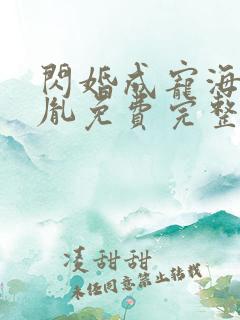 閃婚成寵海
胤免費完整
凌甜甜
未經同意禁止轉載